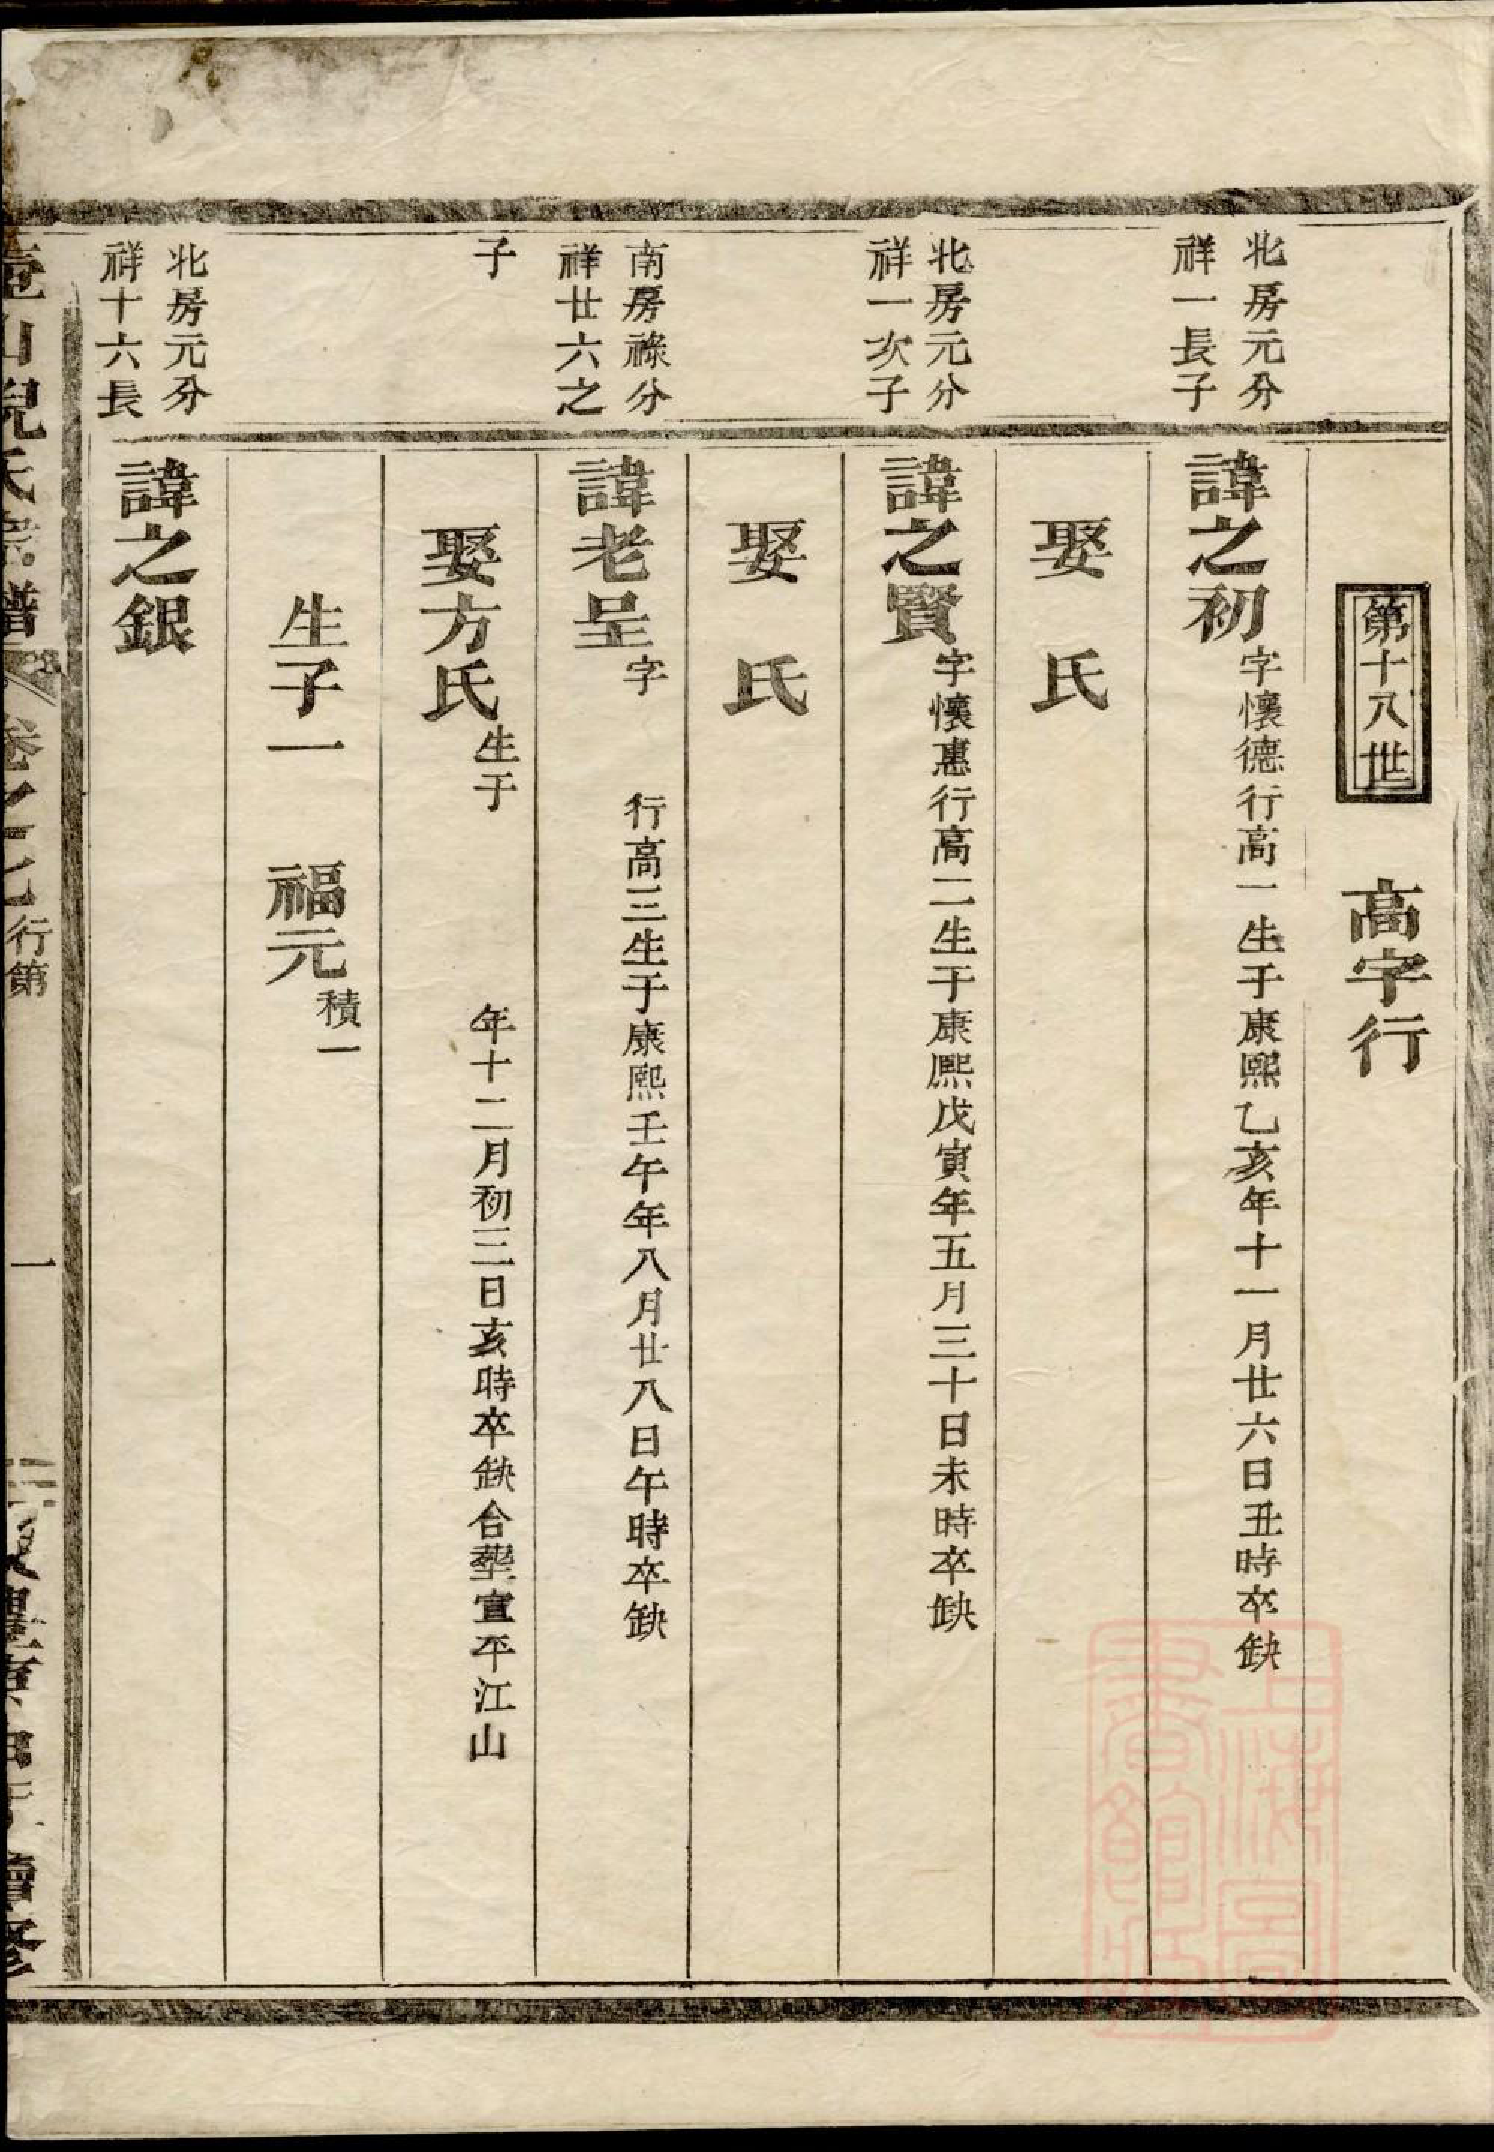 第十八世 高字行
北房元分
祥一長子
諱之初字懷德行高一生于康熙乙亥年十一月廿六日丑時卒缺
娶 氏
北房元分
祥一次子
諱之賢字懷惠行高二生于康熙戊寅年五月三十日未時卒缺
娶 氏
南房祿分
祥廿六之
子
諱老呈字 行高三生于康熙壬午年八月廿八日午時卒缺
娶方氏生于 年十二月初三日亥時卒缺合塟宣平江山
生子一 福元積一
北房元分
祥十六長
諱之銀
山倪氏宗譜 卷之 行第 一 續修
上海圖書館藏